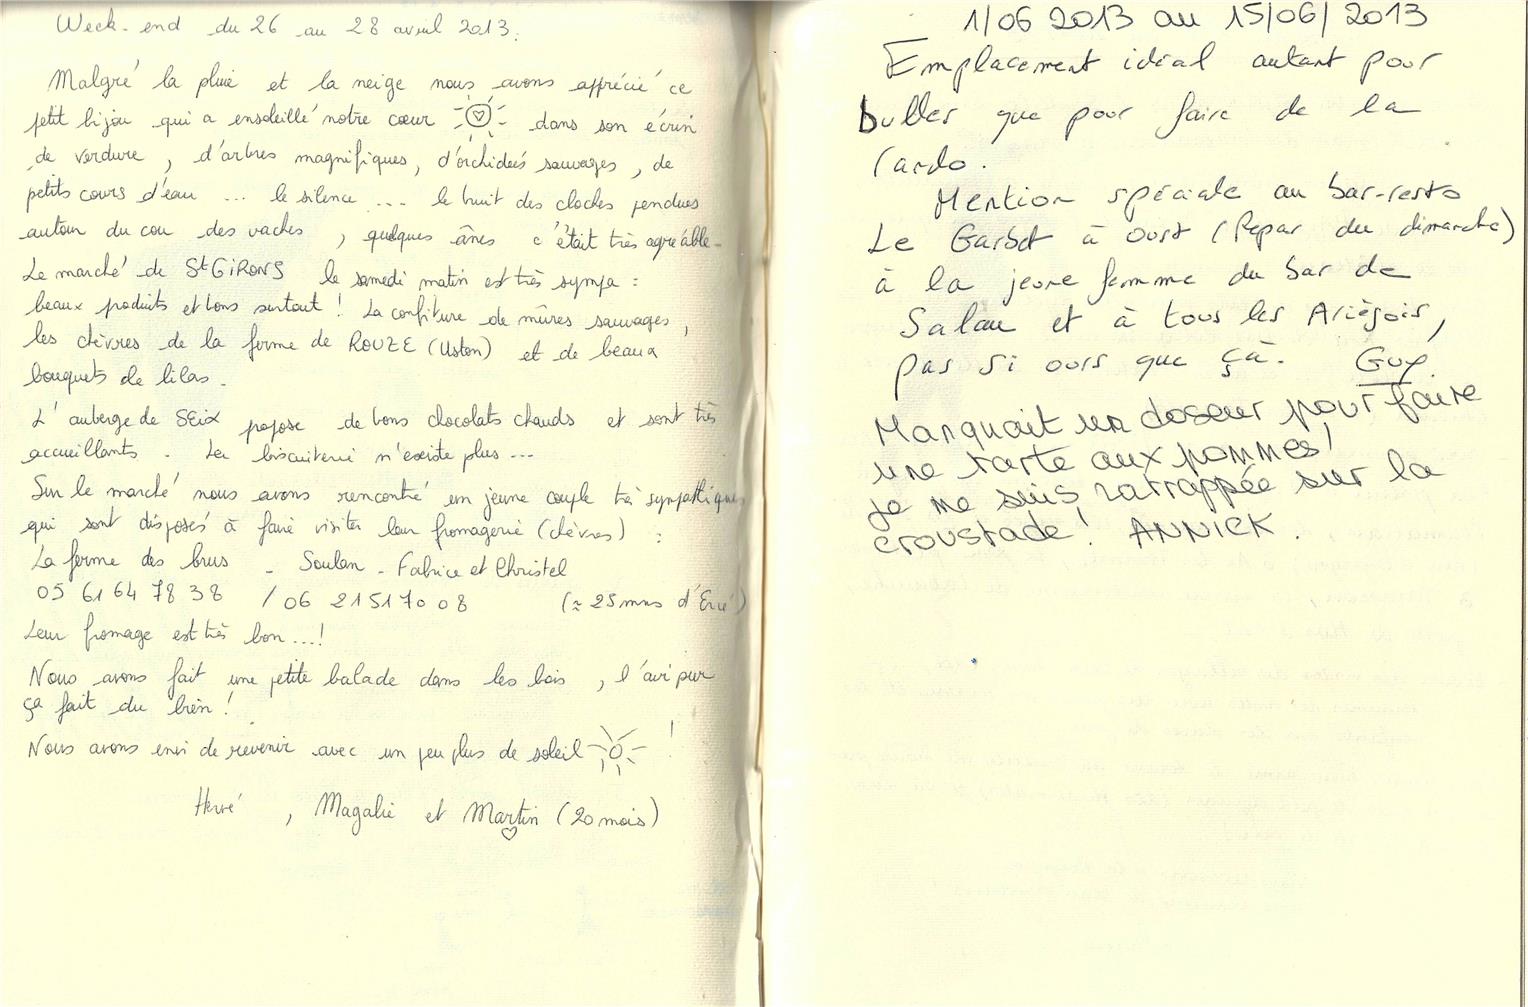 Week-end du 26 au 28 avril 2013.
Malgré la pluie et la neige nous avons apprécié ce
petit bijou qui a ensoleillé notre cœur dans son écrin
de verdure, d'arbres magnifiques, d'orchidées sauvages, de
petits cours d'eau ... le silence ... le bruit des cloches pendues
autour du cou des vaches, quelques ânes c'était très agréable.
Le marché de St GiRONS le samedi matin est très sympa :
beaux produits et bons surtout ! La confiture de mûres sauvages,
les chèvres de la ferme de ROUZE (Uston) et de beaux
bouquets de lilas.
L'auberge de SEix propose de bons chocolats chauds et sont très
accueillants. La biscuiterie n'existe plus...
Sur le marché nous avons rencontré un jeune couple très sympathique
qui sont disposés à faire visiter leur fromagerie (chèvres) :
La ferme des brus - Soulan - Fabrice et Christel
05 61 64 78 38 / 06 21 51 70 08 (≈ 25 mns d'Ercé)
Leur fromage est très bon...!
Nous avons fait une petite balade dans les bois, l'air pur
ça fait du bien !
Nous avons envi de revenir avec un peu plus de soleil !
Hervé, Magalie et Martin (20 mois)
1/06 2013 au 15/06/2013
Emplacement idéal autant pour
buller que pour faire de la
rando.
Mention spéciale au bar-resto
Le Garbet à Oust (Repas du dimanche)
à la jeune femme du bar de
Salau et à tous les Ariègois,
pas si ours que çà. Guy.
Manquait un doseur pour faire
une tarte aux pommes !
je me suis ratrappée sur la
croustade ! ANNICK.